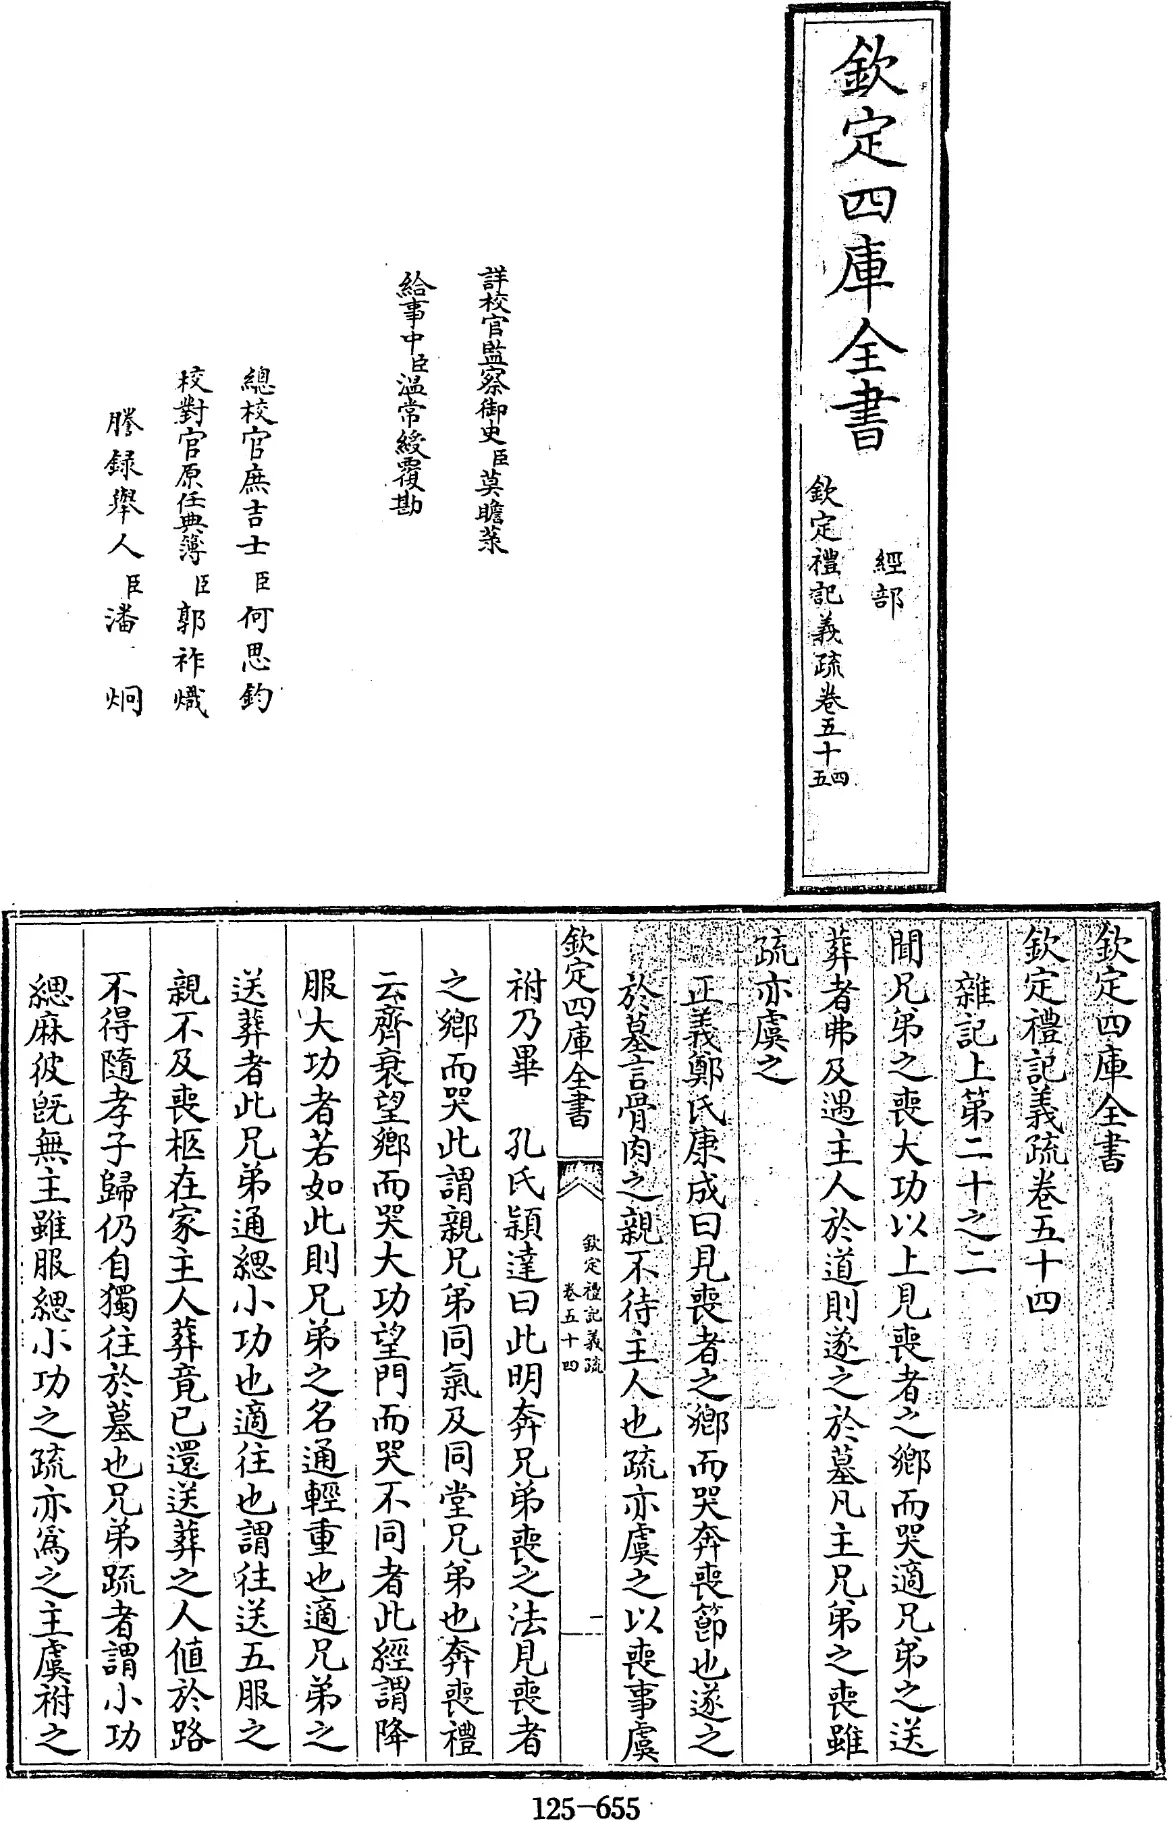 欽定四庫全書
經部
欽定禮記義疏卷五十四
五
詳校官監察御史臣莫瞻菉
給事中臣溫常綬覆勘
總校官庶吉士臣何思鈞
校對官原任典簿臣郭祚熾
謄錄舉人臣潘炯
欽定四庫全書
欽定禮記義疏卷五十四
雜記上第二十之二
聞兄弟之喪大功以上見喪者之鄉而哭適兄弟之送
葬者弗及遇主人於道則遂之於墓凡主兄弟之喪雖
疏亦虞之
正義鄭氏康成曰見喪者之鄉而哭奔喪節也遂之
於墓言骨肉之親不待主人也疏亦虞之以喪事虞
欽定四庫全書
欽定禮記義疏
卷五十四
一
祔乃畢 孔氏穎達曰此明奔兄弟喪之法見喪者
之鄉而哭此謂親兄弟同氣及同堂兄弟也奔喪禮
云齊衰望鄉而哭大功望門而哭不同者此經謂降
服大功者若如此則兄弟之名通輕重也適兄弟之
送葬者此兄弟通緦小功也適往也謂往送五服之
親不及喪柩在家主人葬竟已還送葬之人値於路
不得隨孝子歸仍自獨往於墓也兄弟疏者謂小功
緦麻彼旣無主雖服緦小功之疏亦爲之主虞祔之
125-655